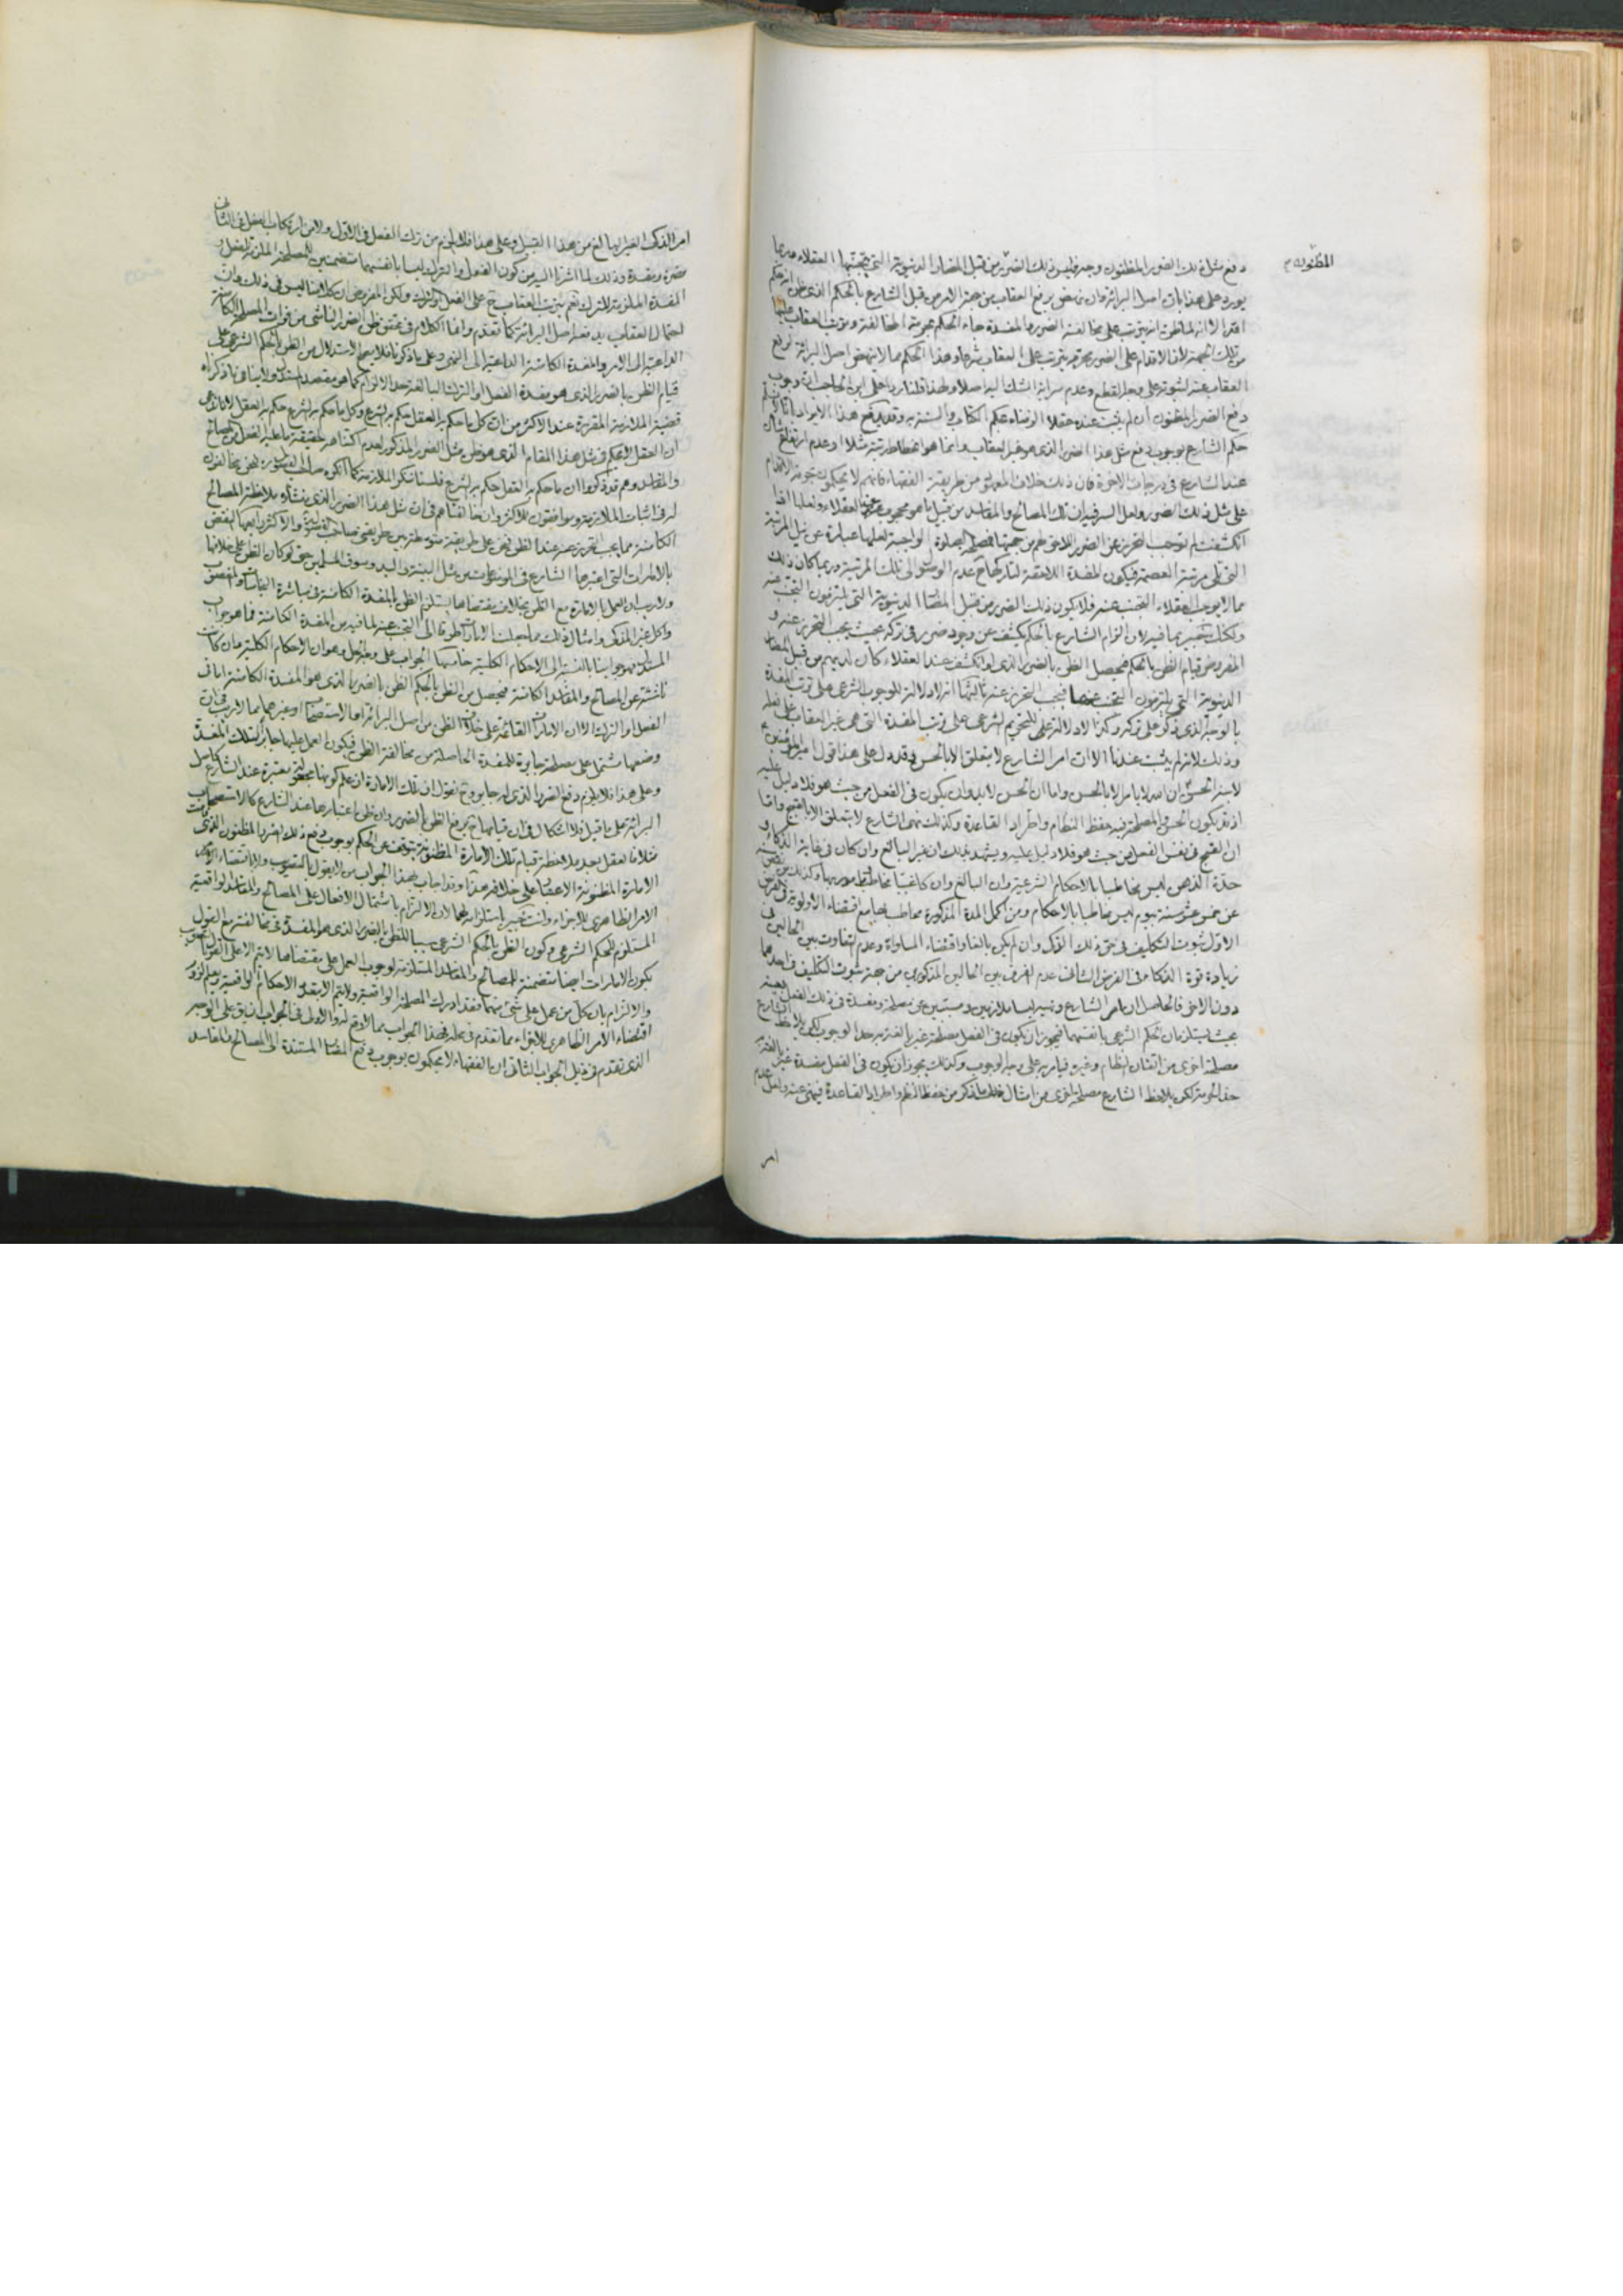 المظنونة م
دفع مثل ذلك الضرر المظنون وجه فليس ذلك الضرر من قبل المضار الدنيوية التي يتجنبها العقلاء وربما
يورد على هذا بان اصل البرائة وان نهض برفع العقاب من جهة الامر من قبل الشارع بالحكم الذي ظن انه حكم
الا انه لما ظن انه يترتب على مخالفته الضرر والمفسدة جاء الحكم بحرمة المخالفة وترتب العقاب عليها
من تلك الجهة لان الاقدام على الضرر محرم يترتب على العقاب شرعا وهذا الحكم مما لا ينهض اصل البرائة لرفع
العقاب عنه لثبوته على وجه القطع وعدم سراية الشك اليه اصلا ولهذا قلنا ردا على ابن الحاجب ان وجوب
دفع الضرر المظنون ان لم يثبت عنده عقلا الوفاء بحكم الكتاب والسنة به وقد يدفع هذا الايراد بانا لا نسلم
حكم الشارع بوجوب دفع مثل هذا الضرر الذي هو غير العقاب وانما هو انحطاط رتبته مثلا وعدم ارتفاع شأنه
عند الشارع في درجات الاخرة فان ذلك خلاف المعهود من طريقة الفقهاء فانهم لا يحكمون بحرمة الاقدام
على مثل ذلك الضرر ولعل السر فيه ان تلك المصالح والمفاسد من قبيل ما هو محجوب عن العقلاء ولعلها اذا
انكشفت لم توجب التحرز عن الضرر اللاحق لهم من جهتها فمصلحة الصلوة الواجبة لعلها عبارة عن نيل المرتبة
التي تلي مرتبة العصمة فيكون المفسدة اللاحقة لتاركها ح عدم الوصول الى تلك المرتبة وربما كان ذلك
مما لا يوجب العقلاء التجنب عنه فلا يكون ذلك الضرر من قبيل المضار الدنيوية التي يلتزمون التجنب عنه
ولكنك خبير بما فيه لان الزام الشارع بالحكم يكشف عن وجود ضرر في تركه بحيث يجب التحرز عنه و
المفروض قيام الظن بالحكم فيحصل الظن بالضرر الذي لو انكشف عند العقلاء كان لديهم من قبيل المضار
الدنيوية التي يلتزمون التجنب عنها فيجب التحرز عنه ثالثها انه لا دلالة للوجوب الشرعي على ترتب المفسدة
بالوجه الذي ذكر على تركه وكذا لا دلالة على للتحريم الشرعي على ترتب المفسدة التي هي غير العقاب على فعله
وذلك لانه لم يثبت عندنا الا ان امر الشارع لا يتعلق الا بالحسن وقد دل على هذا قول امير المؤمنين ع
لابنه الحسن ان الله لا يامر الا بالحسن واما ان الحسن لابد وان يكون في الفعل من حيث هو فلا دليل عليه
اذ قد يكون الحسن والمصلحة فيه حفظ النظام واطراد القاعدة وكذلك نهى الشارع لا يتعلق الا بالقبيح واما
ان القبح في نفس الفعل من حيث هو فلا دليل عليه ويشهد بذلك ان غير البالغ وان كان في غاية الذكاء و
حدة الذهن ليس مخاطبا بالاحكام الشرعية وان البالغ وان كان غبيا مخاطب مامور بها وكذلك من نقص سنه
عن خمس عشرة سنة بيوم ليس مخاطبا بالاحكام ومن اكمل المدة المذكورة مخاطب بها مع اقتضاء الاولوية في الفرض
الاول ثبوت التكليف في حق ذلك الذكي وان لم يكن بالغا واقتضاء المساواة وعدم التفاوت بين الحالين في
زيادة قوة الذكاء في الفرض الثاني عدم الفرق بين الحالين المذكورين من جهة ثبوت التكليف في احدهما
دون الاخر فالحاصل ان امر الشارع ونهيه ليسا ملازمين ومسببين عن مصلحة ومفسدة في ذلك الفعل بعينه
بحيث يستلزمان الحكم الشرعي بانفسهما فيجوز ان يكون في الفعل مصلحة غير بالغة مرحلة الوجوب لكن يلاحظ الشارع
مصلحة اخرى من اتقان النظام وغيره فيامر به على وجه الوجوب وكذلك يجوز ان يكون في الفعل مفسدة غير بالغة
حد الحرمة لكن يلاحظ الشارع مصلحة اخرى من امثال ما ذكر من حفظ النظم واطراد القاعدة فينهى عنه ولعل عدم
امر
امر الذكي الغير البالغ من هذا القبيل وعلى هذا فلا يلزم من ترك الفعل في الاول ولا من ارتكاب الفعل في الثاني
مضرة ومفسدة وذلك لما اشرنا اليه من كون الفعل والترك ليسا بانفسهما متضمنين للمصلحة الملزمة للفعل و
المفسدة الملزمة للترك نعم يترتب العقاب ح على الفعل والترك ولكن المفروض ان كلامنا ليس في ذلك وان
احتمال العقاب يدفعه اصل البرائة كما تقدم وانما الكلام في تحقق ظن الضرر الناشي من فوات المصلحة الكامنة
الداعية الى الامر والمفسدة الكامنة الداعية الى النهي وعلى ما ذكرنا فلا يصح الاستدلال من الظن بالحكم الشرعي على
قيام الظن بالضرر الذي هو مفسدة الفعل او الترك البالغة حد الالزام كما هو مقصد المستدل ولا ينافي ما ذكرناه
قضية الملازمة المقررة عند الاكثر من ان كل ما حكم به العقل حكم به الشرع وكل ما حكم به الشرع حكم به العقل لانا ندعي
ان العقل لا يحكم في مثل هذا المقام الذي هو ظن مثل الضرر المذكور لعدم اكتناهه حقيقة ما عليه الفعل من المصالح
والمفاسد وهم قد ذكروا ان ما حكم به العقل حكم به الشرع فلسنا ننكر الملازمة كما انكره صاحب الفصول فنحن مخالفون
له في اثبات الملازمة وموافقون للاكثر وان خالفناهم في ان مثل هذا الضرر الذي منشاؤه ملاحظة المصالح
الكامنة مما يجب التحرز عنه عند الظن فنحن على طريقة متوسطة بين طريقتي صاحب الفصول والاكثر رابعها النقض
بالامارات التي اعتبرها الشارع في الموضوعات من مثل البينة واليد وسوق المسلمين حتى لو كان الظن على خلافها
ولا ريب ان العمل بالامارة مع الظن بخلاف مقتضاها يستلزم الظن بالمفسدة الكامنة في مباشرة
واكل غير المذكى وامثال ذلك مما جعلت الامارات طرقا الى التجنب عنه لما فيه من المفسدة الكامنة فما هو جواب
المستدل فهو جوابنا بالنسبة الى الاحكام الكلية خامسها الجواب على وجه الحل وهو ان الاحكام الكلية وان كانت
ناشئة عن المصالح والمفاسد الكامنة فيحصل من الظن بالحكم الظن بالضرر الذي هو المفسدة الكامنة اما في
الفعل او الترك الا ان الامارات القائمة على خلاف الظن من اصل البرائة او الاستصحاب او غيرهما مما لا ريب في ان
وضعها مشتمل على مصلحة جابرة للمفسدة الحاصلة من مخالفة الظن فيكون العمل عليها جابرا لتلك المفسدة
وعلى هذا فلا يلزم دفع الضرر الذي له جابر وح نقول ان تلك الامارة ان علم كونها مجعولة معتبرة عند الشارع كاصل
البرائة على ما قيل فلا اشكال في ان قيامها ح يرفع الظن بالضرر وان ظن اعتبارها عند الشارع كالاستصحاب
مثلا فالعقل بعد ملاحظة قيام تلك الامارة المظنونة يتوقف عن الحكم بوجوب دفع ذلك الضرر المظنون الذي قامت
الامارة المظنونة الاعتبار على خلافه هذا وقد اجاب بهذا الجواب من لا يقول بالتصويب ولا باقتضاء الامر
الامر الظاهري للاجزاء وانت خبير باستلزامه لهما لان الالتزام باشتمال الافعال على المصالح والمفاسد الواقعية
المستلزم للحكم الشرعي وكون الظن بالحكم الشرعي سببا للظن بالضرر الذي هو المفسدة في مخالفته مع القول
بكون الامارات ايضا متضمنة للمصالح والمفاسد المستلزمة لوجوب العمل على مقتضاها لا يتم الا على القول بالتصويب
والالتزام بان كل من عمل على شيئ منهما فقد ادرك المصلحة الواقعية ولا يتم الا بتعدد الاحكام الواقعية ويعلم لزوم
اقتضاء الامر الظاهري للاجزاء مما تقدم في محله فهذا الجواب مما لا وقع له والاولى في الجواب ان يق على الوجه
الذي تقدم في ذيل الجواب الثاني ان الفقهاء لا يحكمون بوجوب دفع المضار المستندة الى المصالح والمفاسد